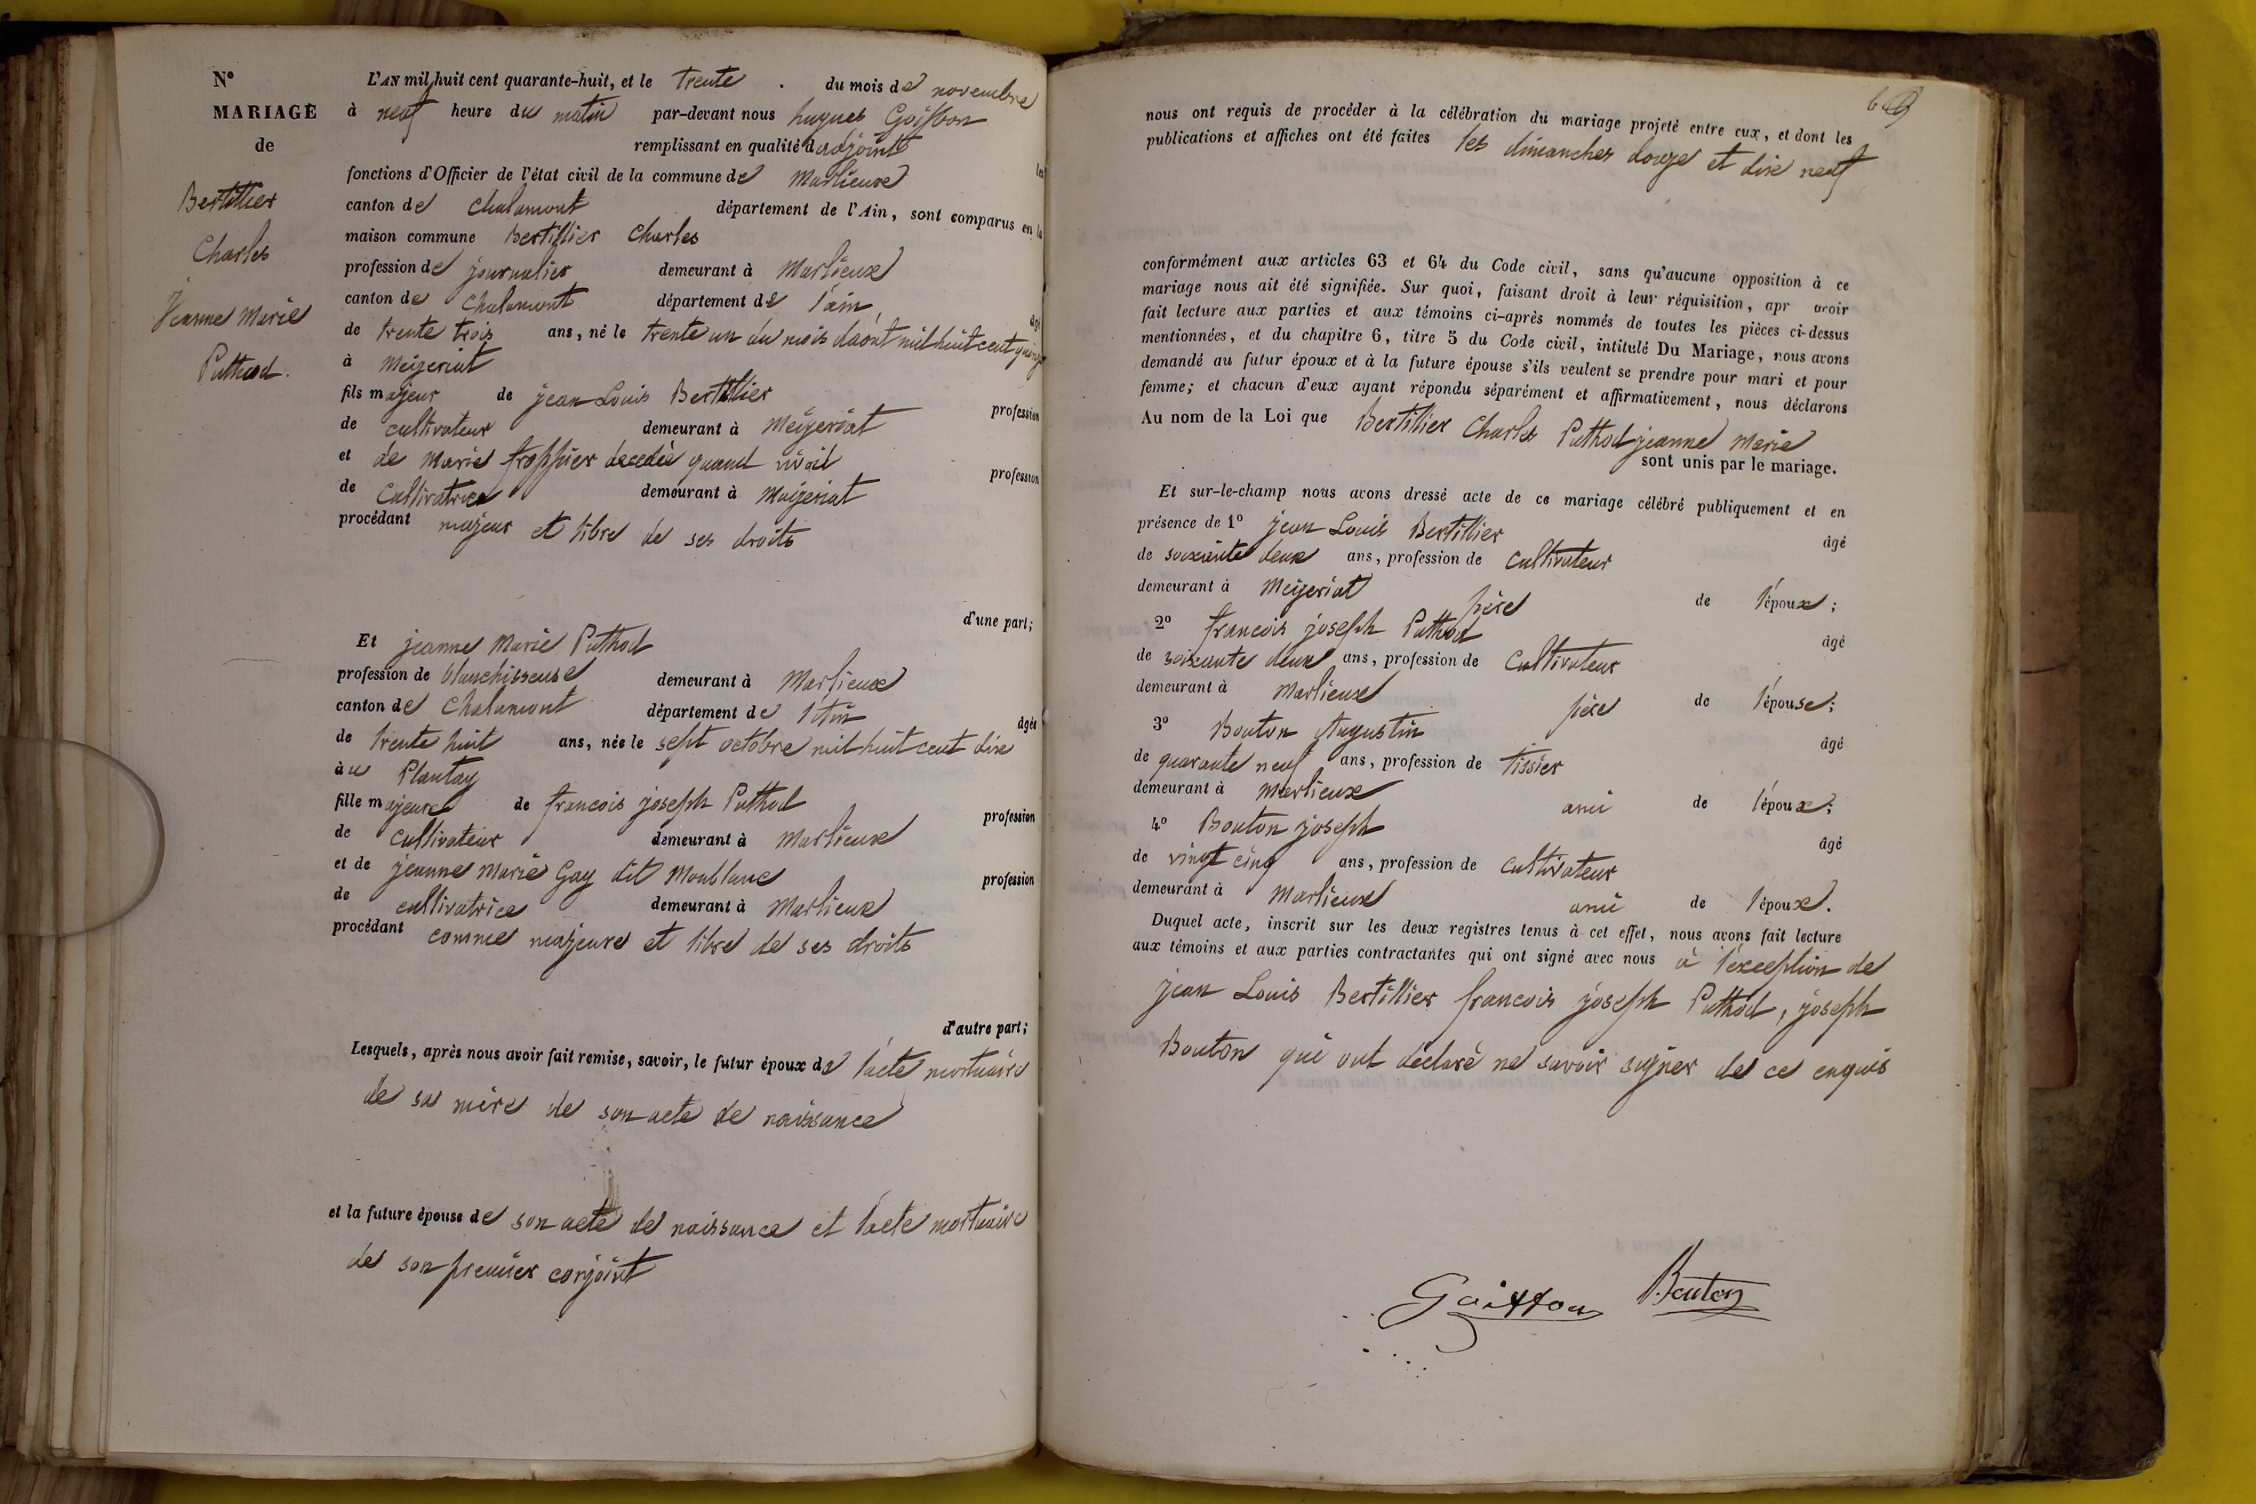 N°
MARIAGE
de
Bertillier
Charles
Jeanne Marie
Puthod.
L'AN mil huit cent quarante-huit, et le trente du mois de novembre
à neuf heure du matin par-devant nous hugues Goiffon
remplissant en qualité d'adjoint les
fonctions d'Officier de l'état civil de la commune de Marlieux
canton de Chalamont département de l'Ain, sont comparus en la
maison commune Bertillier Charles
profession de journalier demeurant à Marlieux
canton de Chalamont département de l'ain âgé
de trente trois ans, né le trente un du mois daout mil huit cent quinze
à Meizeriat
fils majeur de jean Louis Bertillier profession
de cultivateur demeurant à Meizeriat
et de marie froppier decedée quand vivait profession
de Cultivatrice demeurant à Maizeriat
procédant majeur et libre de ses droits
d'une part;
Et jeanne Marie Puthod
profession de blanchisseuse demeurant à Marlieux
canton de Chalamont département de l'Ain âgée
de trente huit ans, née le sept octobre mil huit cent dix
à u Plantay
fille majeure de francois joseph Puthod profession
de cultivateur demeurant à Marlieux
et de jeanne Marie Gay dit Monblanc profession
de cultivatrice demeurant à Marlieux
procédant comme majeure et libre de ses droits
d'autre part;
Lesquels, après nous avoir fait remise, savoir, le futur époux de l'acte mortuaire
de sa mère de son acte de naissance
et la future épouse de son acte de naissance et l'acte mortuaire
de son premier conjoint
nous ont requis de procéder à la célébration du mariage projeté entre eux, et dont les
publications et affiches ont été faites les dimanches douze et dix neuf
conformément aux articles 63 et 64 du Code civil, sans qu'aucune opposition à ce
mariage nous ait été signifiée. Sur quoi, faisant droit à leur réquisition, apr avoir
fait lecture aux parties et aux témoins ci-après nommés de toutes les pièces ci-dessus
mentionnées, et du chapitre 6, titre 5 du Code civil, intitulé Du Mariage, nous avons
demandé au futur époux et à la future épouse s'ils veulent se prendre pour mari et pour
femme; et chacun d'eux ayant répondu séparément et affirmativement, nous déclarons
Au nom de la Loi que Bertillier Charles Puthod jeanne Marie
sont unis par le mariage.
Et sur-le-champ nous avons dressé acte de ce mariage célébré publiquement et en
présence de 1° jean Louis Bertillier âgé
de soixante deux ans, profession de Cultivateur
demeurant à Meizeriat père de l'époux;
2° francois joseph Puthod âgé
de soixante deux ans, profession de Cultivateur
demeurant à Marlieux père de l'épouse;
3° Bouton Augustin âgé
de quarante neuf ans, profession de tissier
demeurant à Marlieux ami de l'époux;
4° Bouton joseph âgé
de vingt cinq ans, profession de Cultivateur
demeurant à Marlieux ami de l'époux.
Duquel acte, inscrit sur les deux registres tenus à cet effet, nous avons fait lecture
aux témoins et aux parties contractantes qui ont signé avec nous à l'exception de
jean Louis Bertillier francois joseph Puthod, joseph
Bouton qui ont déclaré ne savoir signer de ce enquis
Goiffon Bouton